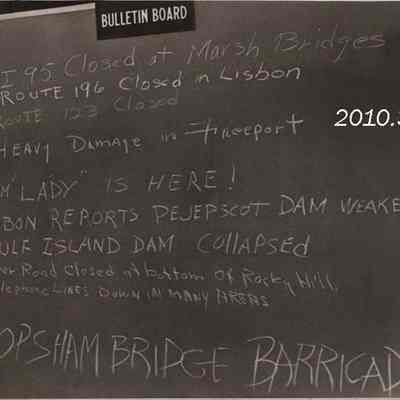 BULLETIN BOARD
I 95 Closed at Marsh Bridges
ROUTE 196 Closed in Lisbon
ROUTE 123 Closed
2010.
HEAVY Damage in Freeport
"LADY" IS HERE!
BON REPORTS PEJEPSCOT DAM WEAKE
ULF ISLAND DAM COLLAPSED
Road Closed at bottom of Rocky Hill
elephone LINES DOWN IN MANY AREAS
OPSHAM BRIDGE BARRICAD